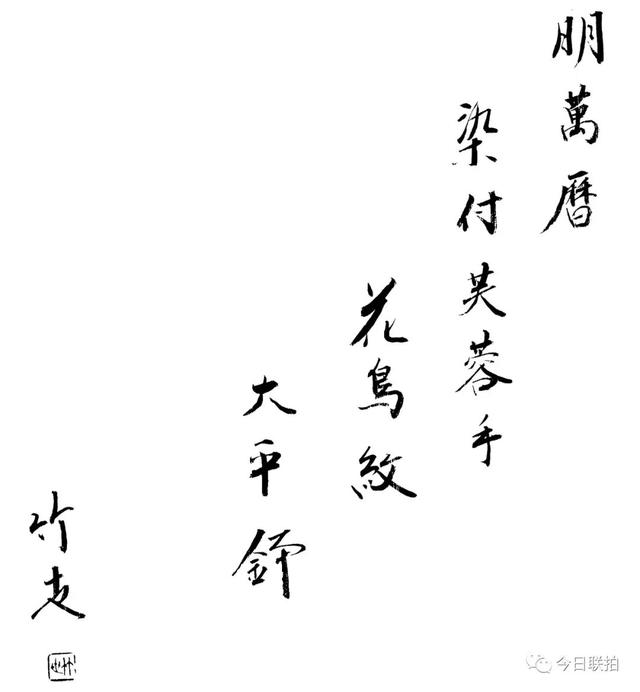 明萬暦
染付芙蓉手
花鳥紋
大平鉢
竹
今日联拍